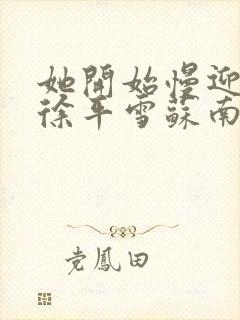 她開始慢迎
徐年雪蘇南
党鳳田